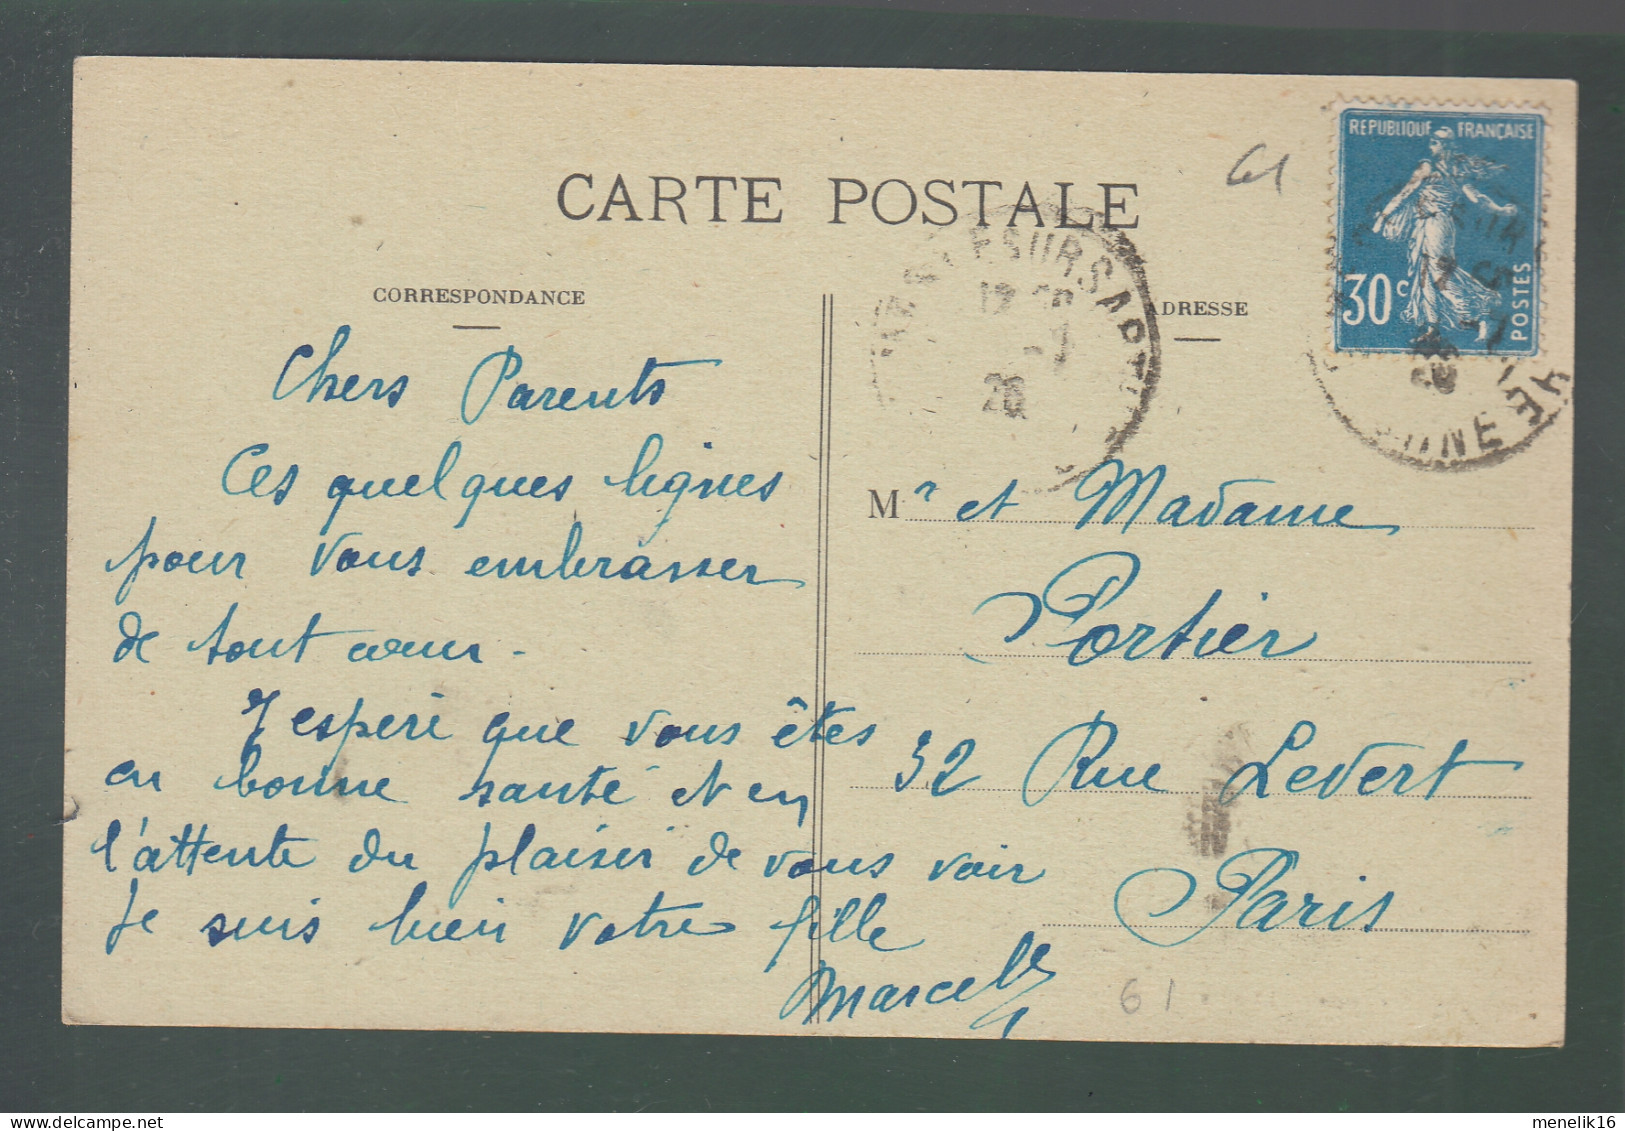 CARTE POSTALE
CORRESPONDANCE
ADRESSE
61
REPUBLIQUE FRANÇAISE
30 c
POSTES
SUR SARTHE
26
Chers Parents
Ces quelques lignes
pour vous embrasser
de tout cœur -
J'esperé que vous êtes
en bonne santé et en
l'attente du plaisir de vous voir
Je suis bien votre fille
Marcelle
Mr et Madame
Portier
32 Rue Levert
Paris
61
delcampe.net
menelik16